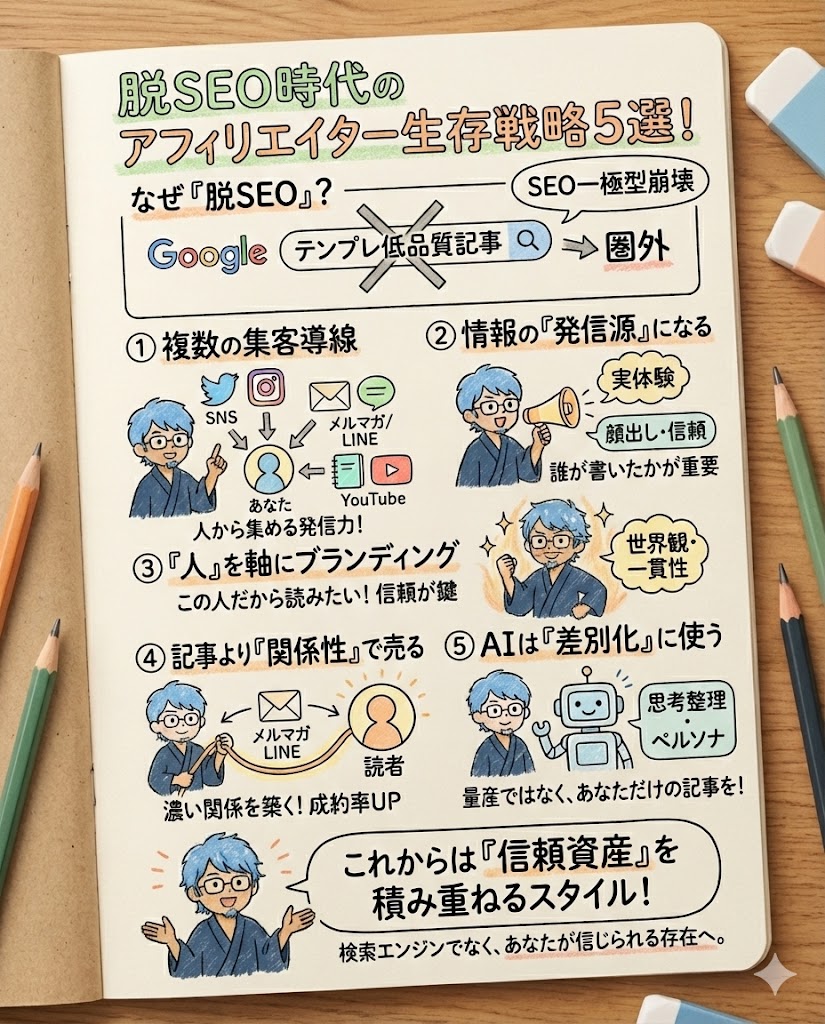 脱SEO時代の
アフィリエイター生存戦略5選!
なぜ『脱SEO』?
SEO一極型崩壊
Google
テンプレ低品質記事
圏外
① 複数の集客導線
SNS
メルマガ/
LINE
あなた
YouTube
人から集める発信力!
② 情報の『発信源』になる
実体験
顔出し・信頼
誰が書いたかが重要
③ 『人』を軸にブランディング
この人だから読みたい! 信頼が鍵
世界観・
一貫性
④ 記事より『関係性』で売る
メルマガ
LINE
読者
濃い関係を築く! 成約率UP
⑤ AIは『差別化』に使う
思考整理
・
ペルソナ
量産ではなく、あなただけの記事を!
これからは『信頼資産』を
積み重ねるスタイル!
検索エンジンでなく、あなたが信じられる存在へ。